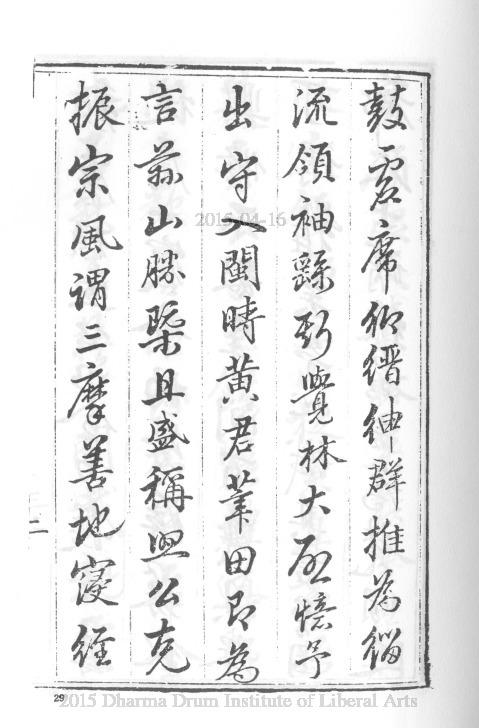 鼓虛席仰縉紳群推為緇
流領袖繇斯覺林大啟憶予
出守入閩時黃君葦田即為
言山勝槩且盛稱公克
振宗風謂三摩善地寖經
二
29
2015-04-16
2015 Dharma Drum Institute of Liberal Arts